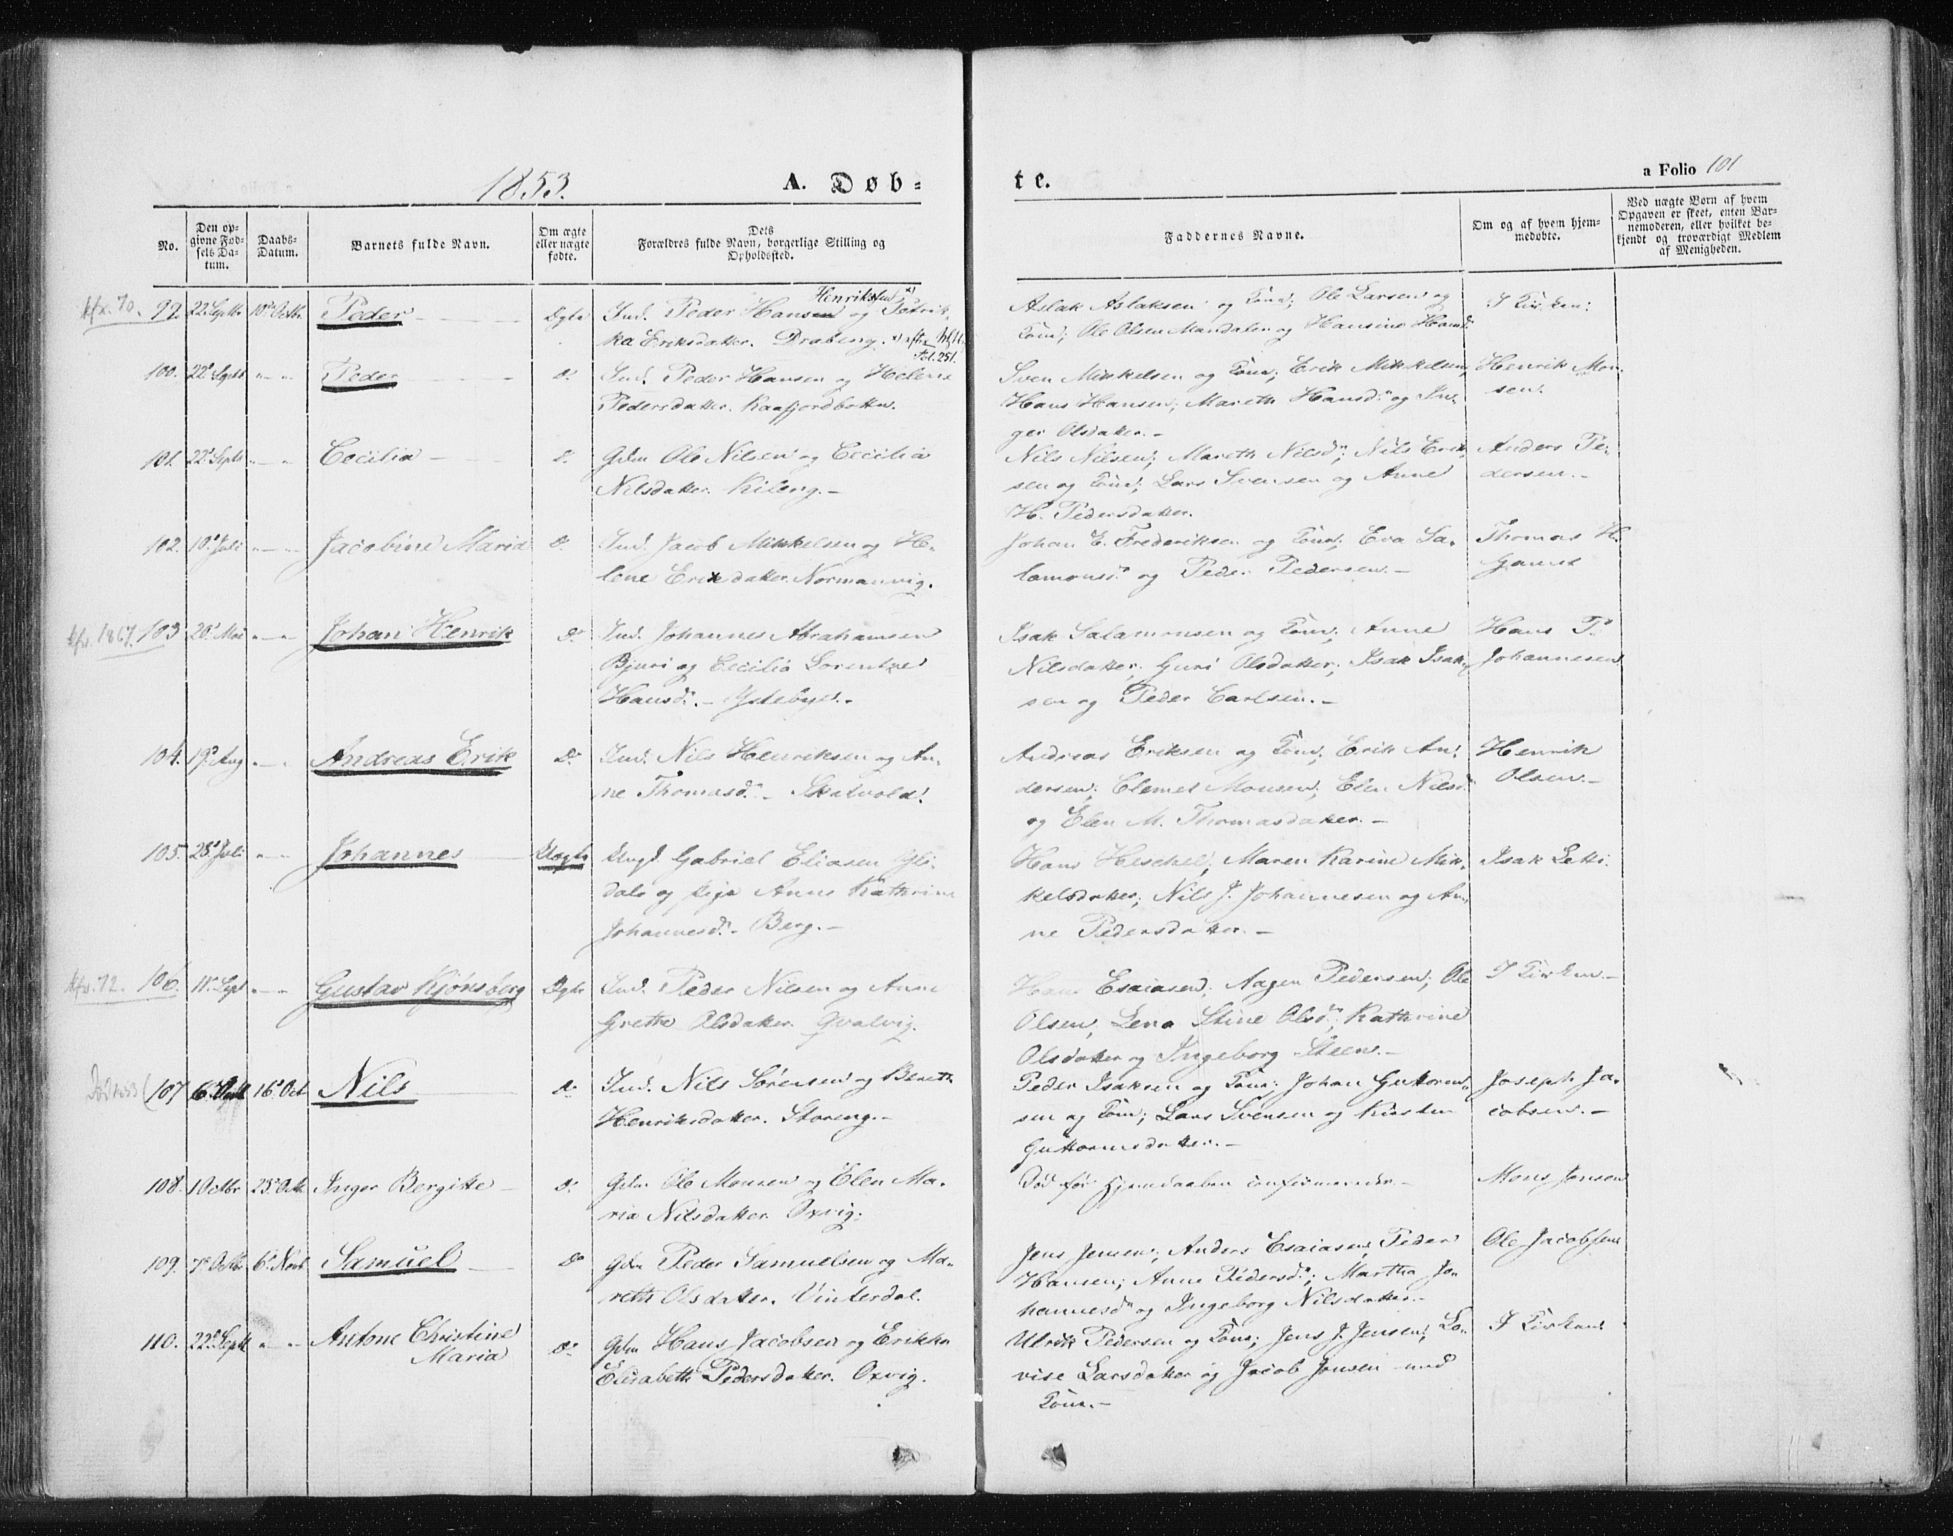 1853.
A. Døb=
te.
a Folio 101
No.
Den opgivne Fødsels Datum.
Daabs-Datum.
Barnets fulde Navn.
Om ægte eller uægte fødte.
Dets Forældres fulde Navn, borgerlige Stilling og Opholdssted.
Faddernes Navne.
Om og af hvem hjemmedøbte.
Ved uægte Børn af hvem Opgaven er skeet, enten Barnemoderen, eller hvilket bekjendt og troværdigt Medlem af Menigheden.
kfr. 70. 99. 22 Septb 10de Octbr Peder Ægte Ind. Peder Hansen og Fredrik-
Henriksen x)
ka Eriksdatter. Drabeng. x) efter
Fol. 251.
Aslak Aslaksen og Kone; Ole Larsen og
Kone; Ole Olsen Mandalen og Hansine Hansd.
I Kirken.
100. 22 Septb " " Peder Do Ind. Peder Hansen og Helene
Pedersdatter. Kaafjordbotten.
Sven Mikkelsen og Kone; Erik Mikkelsen,
Hans Hansen; Mareth Hansdr og In-
ger Olsdatter.-
Henrik Mon-
sen.
101. 22 Septb " " Cecilia Do Gdm Ole Nilsen og Cecilia
Nilsdatter. Kileng.-
Nils Nilsen; Mareth Nilsdr; Nils Erik-
sen og Kone; Lars Svensen og Anne
H. Pedersdatter.
Anders Pe-
dersen.-
102. 10 Juli " " Jacobine Maria Do Ind. Jacob Mikkelsen og He-
lene Eriksdatter. Normanvig.
Johan E. Frederiksen og Kone; Eva Sa-
lamonsdr og Peder Pedersen.-
Thomas H.
Gamst
kfr. 1867. 103 20 Mai " " Johan Henrik Do Ind. Johannes Abrahamsen
Bjuri og Cecilia Lorentze
Hansdr.- Ystebyen.
Isak Salamonsen og Kone; Anne
Nilsdatter, Guri Olsdatter; Isak Isak-
sen og Peder Carlsen.-
Hans P.
Johannesen
104. 19 Aug " " Andreas Erik Do Ind. Nils Henriksen og An-
ne Thomasdr.- Skatvold.
Andreas Eriksen og Kone; Erik An-
dersen; Clemet Monsen; Elen Nilsd.
og Elen M. Thomasdatter.-
Henrik
Olsen.-
105. 28 Juli " " Johannes Uægte Ungk. Gabriel Eliasen Gli-
dals og Pige Anne Kathrine
Johannesdr. Berg.-
Hans Heschel; Maren Karine Mik-
kelsdatter; Nils J. Johannesen og An-
ne Pedersdatter.-
Isak Letti
kfr. 72. 106. 11 Sept " " Gustav Kjønsberg Ægte Ind. Peder Nilsen og Anne
Grethe Olsdatter. Qvalvig.
Hans Esaiasen, Aagen Pedersen; Ole
Olsen, Lena Stine Olsdr, Kathrine
Olsdatter og Ingeborg Steen.-
I Kirken.-
Død 1853 107 6 16 Oct Nils Do Ind. Nils Sørensen og Bereth
Henriksdatter. Storeng.-
Peder Isaksen og Kone; Johan Guttorm-
sen og Kone; Lars Svensen og Kirsten
Guttormsdatter.-
Joseph Ja-
cobsen.-
108. 1 Octbr 23 Oct Inger Bergitte Do Gdm Ole Monsen og Elen Ma-
ria Nilsdatter. Oxvig.
Død før Hjemdaaben confirmeredes.-
Mons Jonsen
109. 7 Octbr 6 Novb Samuel Do Gdm Peder Samuelsen og Ma-
reth Olsdatter. Vinterdal.
Jens Jensen; Anders Esaiasen, Peder
Hansen; Anne Pedersdr; Martha Jo-
hannesdr og Ingeborg Nilsdatter.-
Ole Jacobsen
110. 22 Septb " " Antone Christine
Maria Do Gdm Hans Jacobsen og Erikka
Elisabeth Pedersdatter. Oxvig.
Ulrik Pedersen og Kone; Jens J. Jensen; Lo-
vise Larsdatter og Jacob Jonsen med
Kone.-
I Kirken.